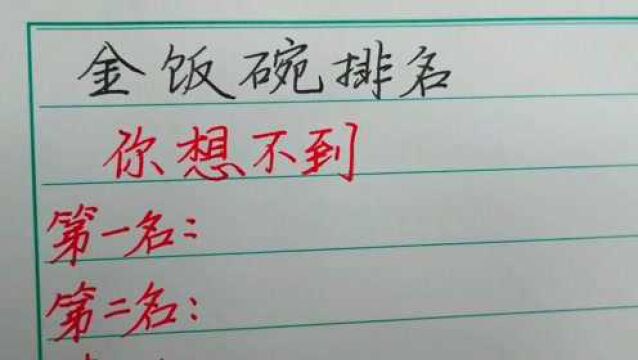 金饭碗排名
你想不到
第一名:
第二名: